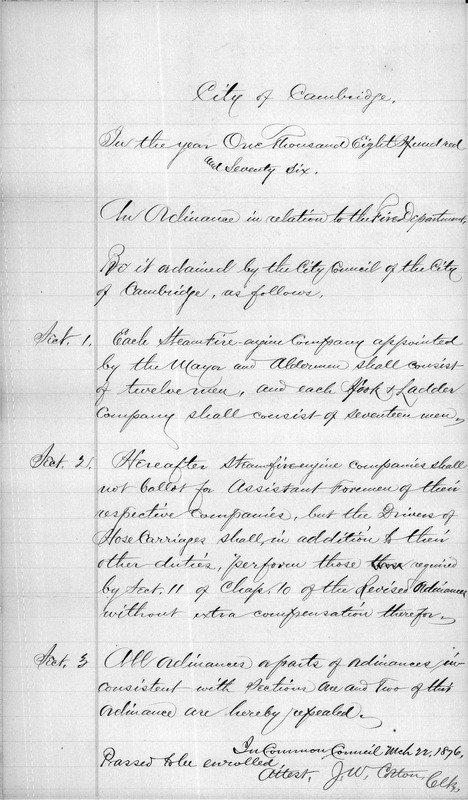 City of Cambridge.
In the year One Thousand Eight Hundred
and Seventy Six.
An Ordinance in relation to the Fire Department.
Be it ordained by the City Council of the City
of Cambridge, as follows.
Sect. 1. Each Steam Fire-engine Company appointed
by the Mayor and Aldermen shall consist
of twelve men, and each Hook & Ladder
Company shall consist of seventeen men.
Sect. 2. Hereafter Steam fire engine companies shall
not ballot for Assistant Foremen of their
respective Companies, but the Drivers of
Hose Carriages shall, in addition to their
other duties, perform those required
by Sect. 11 of Chap. 10 of the Revised Ordinances
without extra compensation therefor.
Sect. 3 All ordinances or parts of ordinances in-
consistent with Sections One and Two of this
ordinance are hereby repealed.
In Common Council Mch 22, 1876,
Passed to be enrolled
Attest, J. W. Coton, Clk,